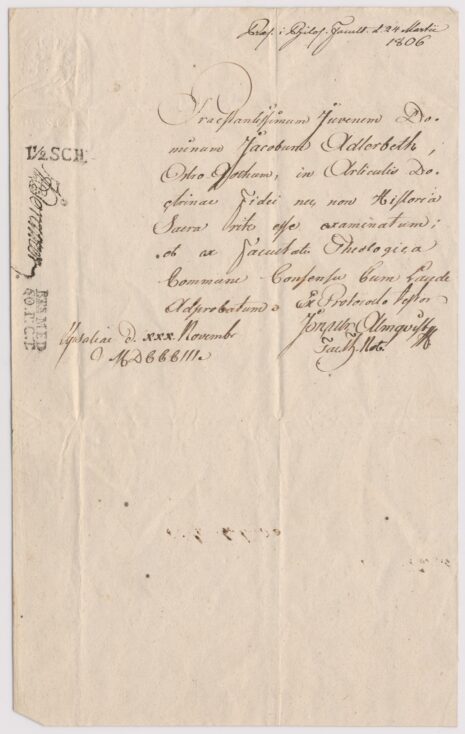 Præs. i Philos. Facult. d. 24 Martii
1806
Praestantissimum Juvenem Do-
minum Jacobum Adlerbeth,
Ostro Gothum, in Articulis Do-
ctrinae Fidei nec non Historia
Sacra rite esse examinatum;
et ex Facultatis Theologica
Communi Consensu Cum Laude
Adprobatum. Ex Protocolo Testor
Almquist
Fac. Th. Not.
Upsaliae d. XXX. Novembr
MDCCCIII.
1½ SCH.